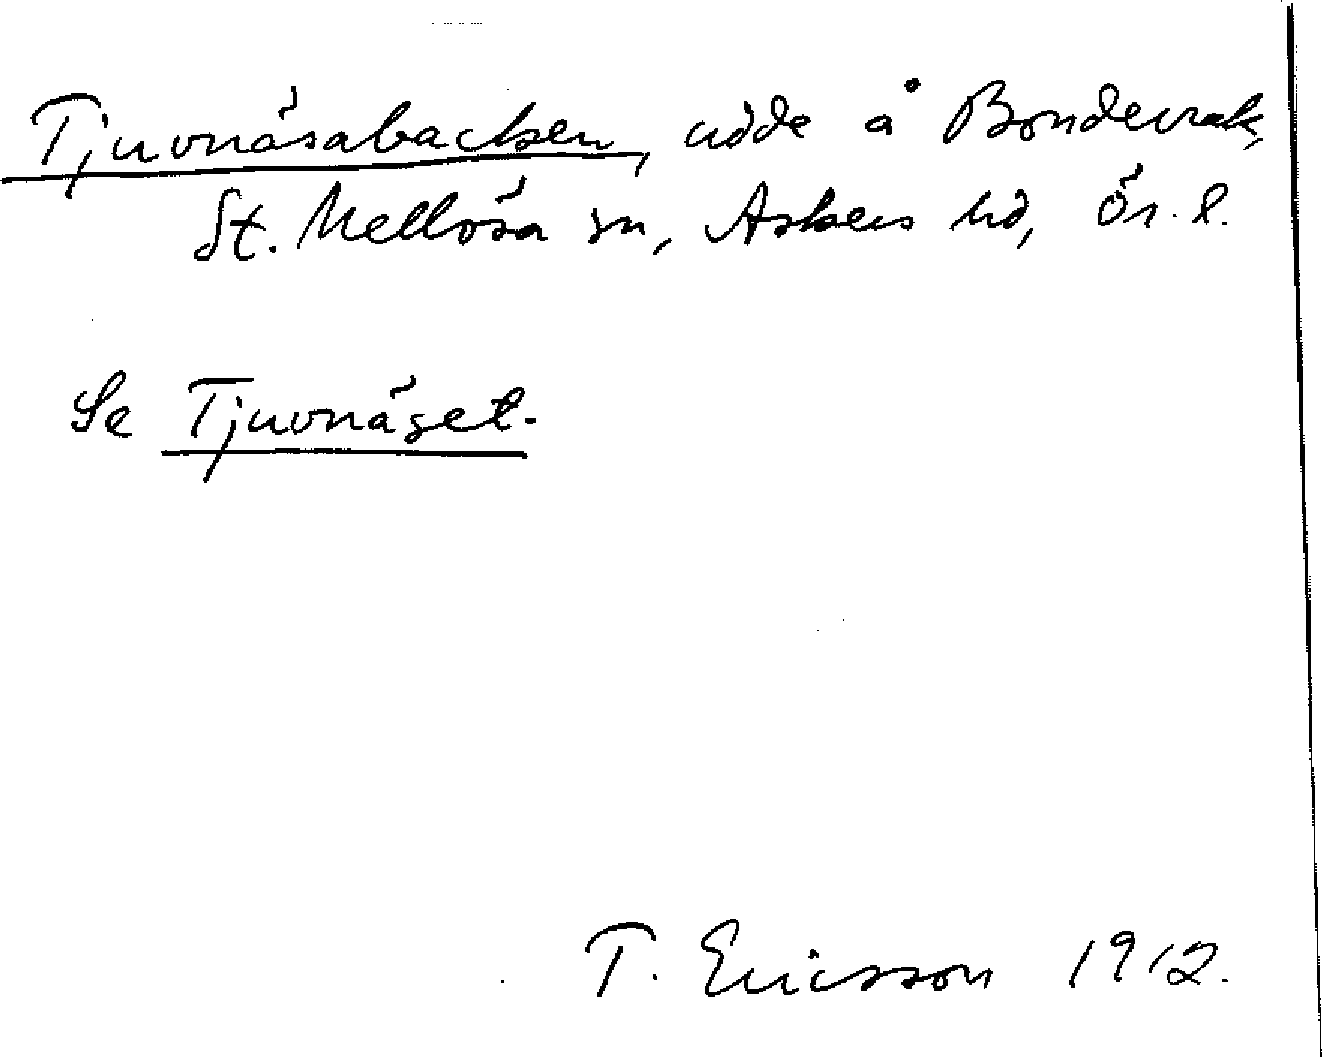 Tjuvnäsabacken, udde å Bondevrak,
St. Mellösa sn, Askers hd, Ör. l.
Se Tjuvnäset.
T. Ericsson 1912.